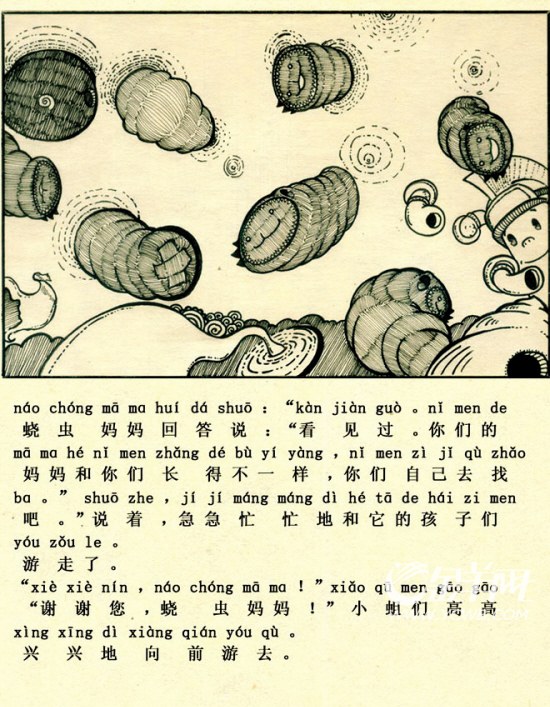 náo chóng mā mɑ huí dá shuō : “kàn jiàn guò 。nǐ men de
蛲 虫 妈妈 回 答 说 : “看 见 过 。你们 的
mā mɑ hé nǐ men zhǎng dé bù yí yàng , nǐ men zì jǐ qù zhǎo
妈妈 和 你们 长 得不 一 样 , 你们 自己 去 找
bɑ 。” shuō zhe , jí jí máng máng dì hé tā de hái zi men
吧 。”说 着 , 急急 忙 忙 地和 它的 孩 子们
yóu zǒu le 。
游 走了 。
“xiè xiè nín , náo chóng mā mɑ ! ”xiǎo qū men gāo gāo
“谢 谢 您 , 蛲 虫 妈妈 ! ” 小 蛆们 高 高
xìng xīng dì xiàng qián yóu qù 。
兴 兴 地 向 前 游 去 。